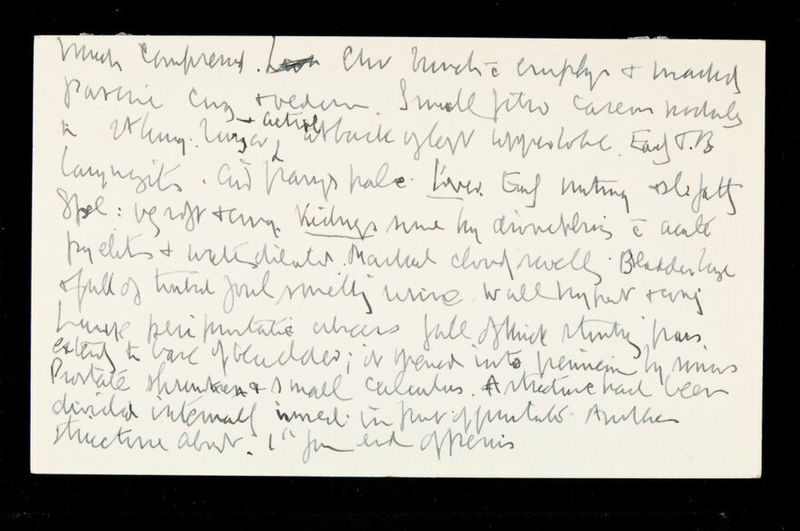 much compressed. Chr bronch c̄ emphys + marked
passive cong + oedema. Small fibro caseous nodules
in lung. + active at back of left upper lobe. Early T.B
laryngitis. pale. Liver. Early nutmeg + sl. fatty
Spl: v soft + cong. Kidneys some hydronephrosis c̄ acute
pyelitis + ureters dilated. Marked cloudy swelling. Bladder large
+ full of turbid foul smelling urine. Wall hypert + cong
Large periprostatic abscess full of thick stinking pus.
extends to base of bladder; it opened into perineum by sinus
Prostate shrunken + small calculus. A stricture had been
divided internally in front of prostate. Another
stricture about 1" from end of penis